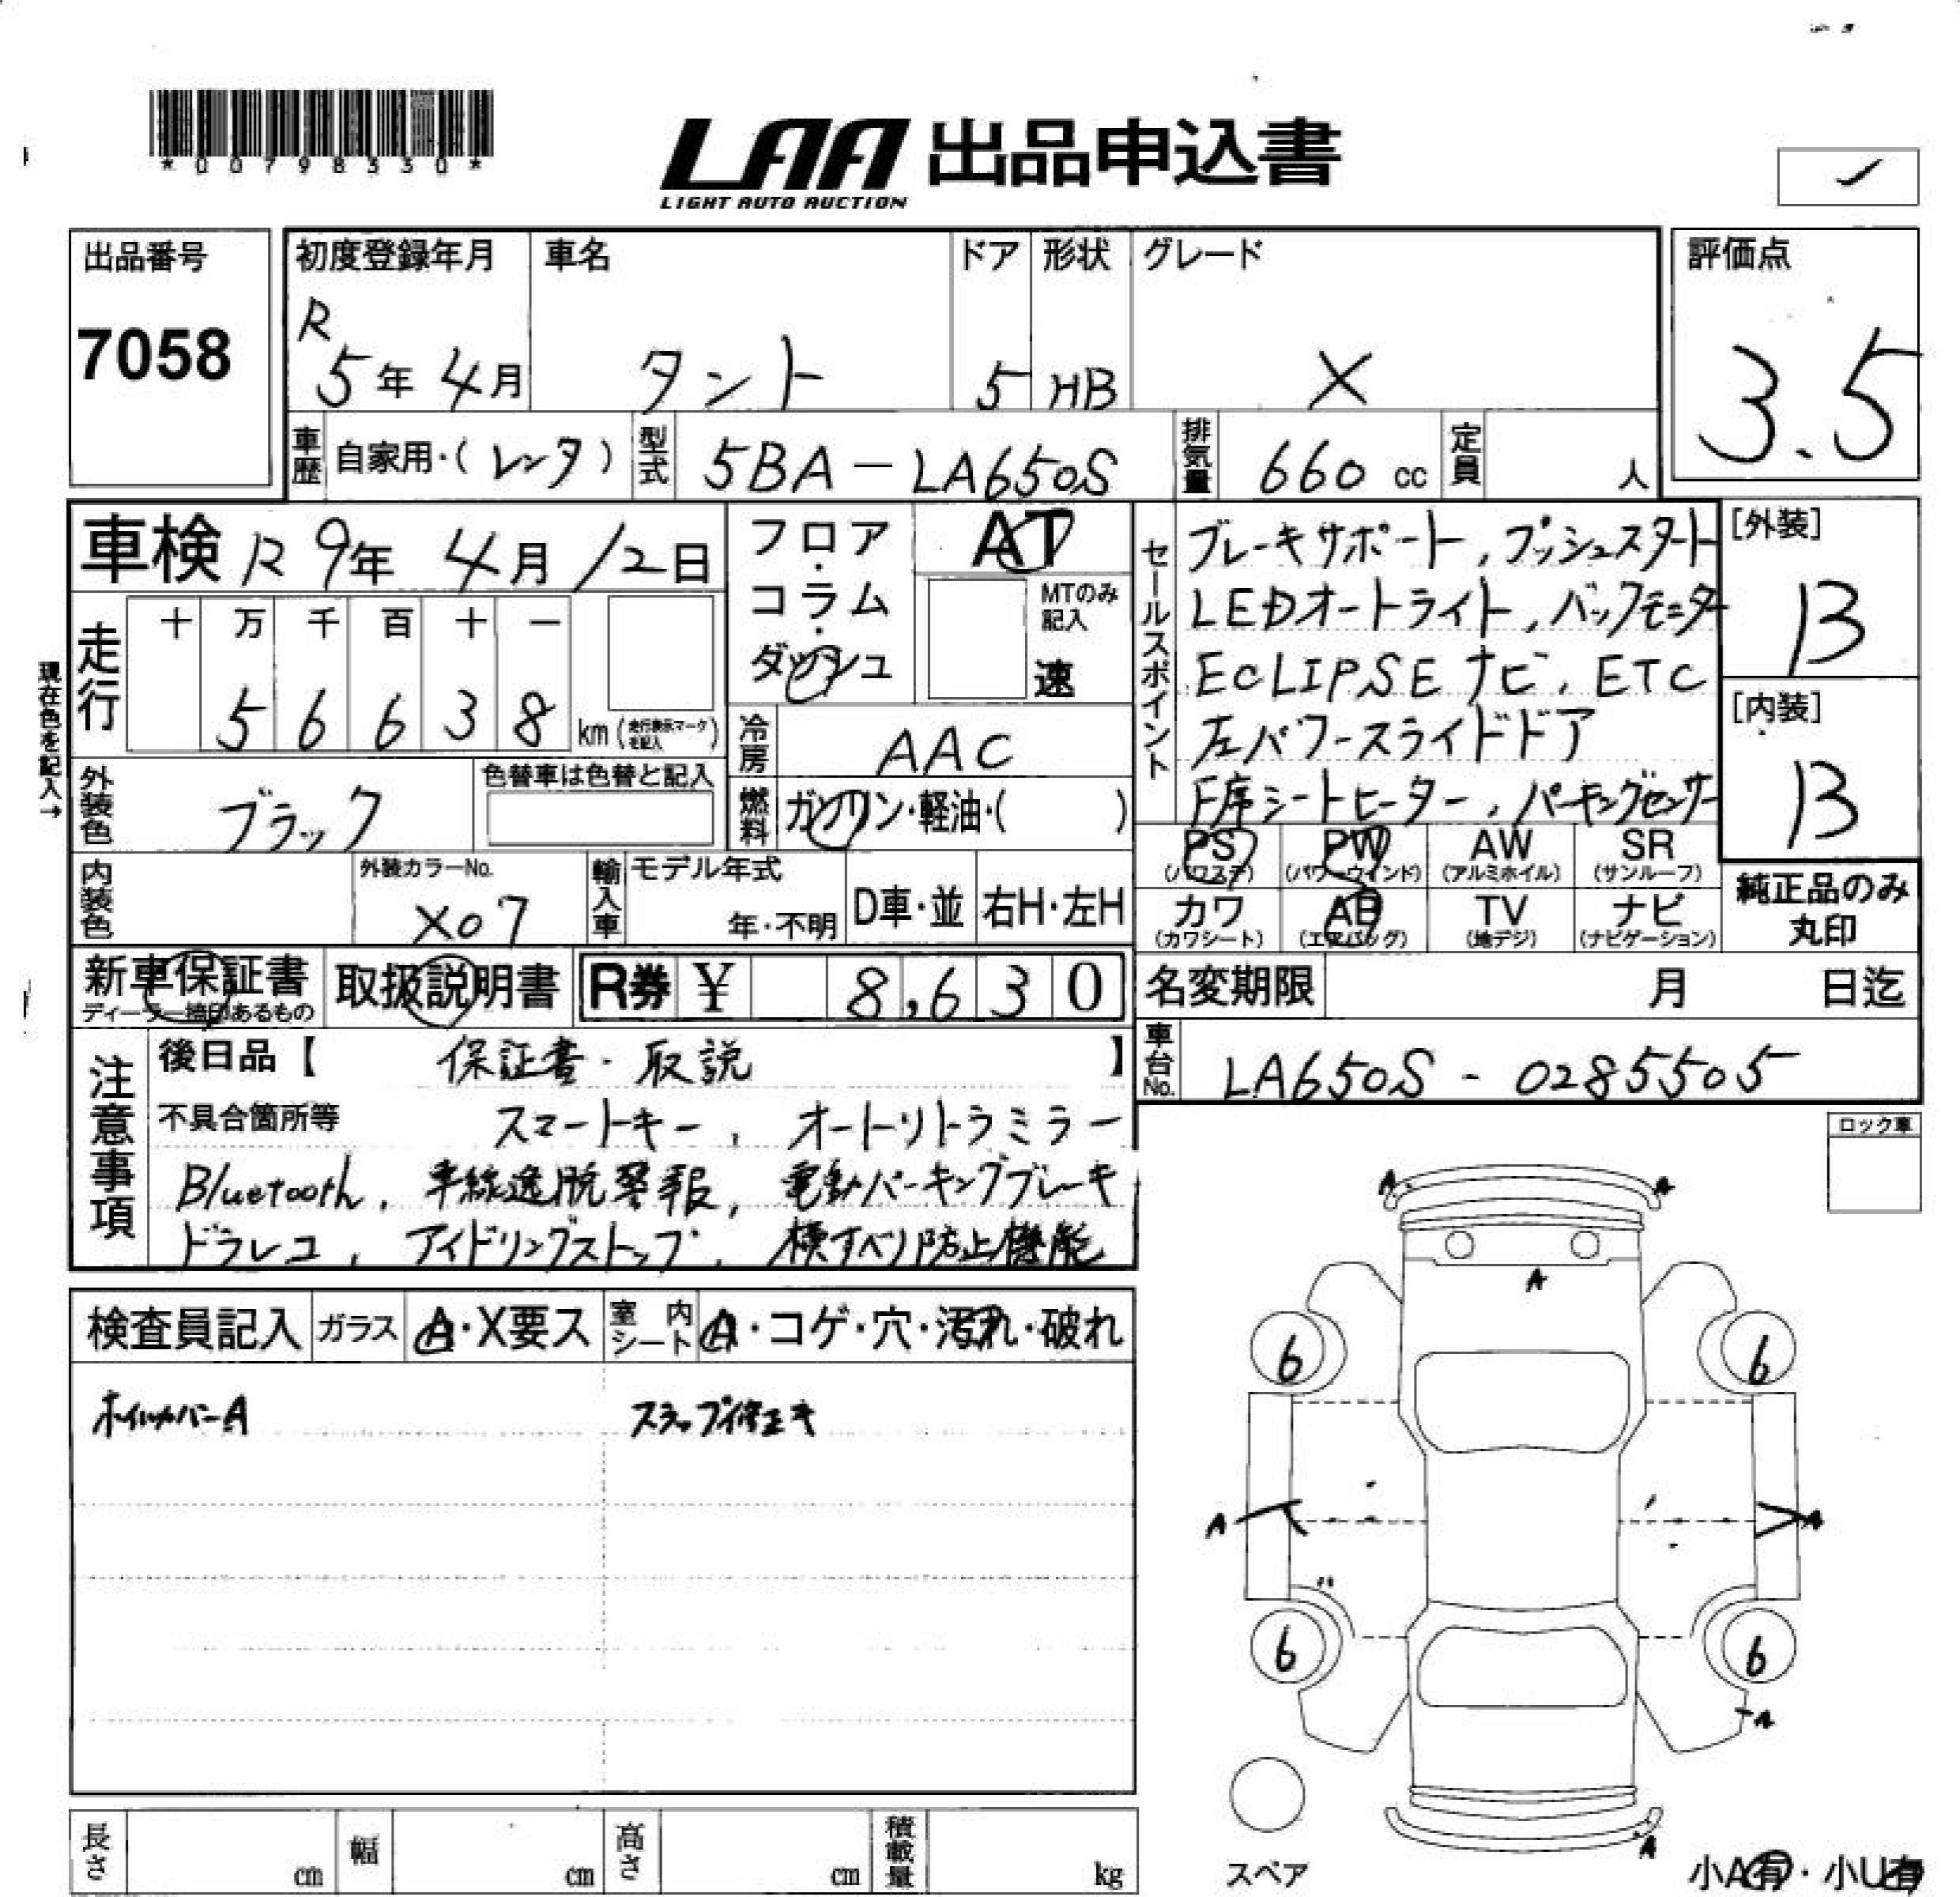 *00798330*
LAA 出品申込書
LIGHT AUTO AUCTION
出品番号
7058
初度登録年月
R
5年 4月
車名
タント
ドア
5
形状
HB
グレード
X
評価点
3.5
車歴 自家用・(レンタ)
型式 5BA-LA650S
排気量 660 cc
定員 人
車検 R 9年 4月 12日
現在色を記入→
走行
十 万 千 百 十 一
5 6 6 3 8 km (走行表示マークを記入)
フロア・コラム・ダッシュ
AT
MTのみ記入
速
セールスポイント
ブレーキサポート, プッシュスタート
LEDオートライト, バックモニター
ECLIPSE ナビ, ETC
左パワースライドドア
F席シートヒーター, パーキングセンサー
[外装]
B
[内装]
B
外装色 ブラック
色替車は色替と記入
冷房 AAC
燃料 ガソリン・軽油・( )
内装色
外装カラーNo.
X07
輸入車 モデル年式
年・不明
D車・並
右H・左H
PS (パワステ)
PW (パワーウインド)
AW (アルミホイル)
SR (サンルーフ)
カワ (カワシート)
AB (エアバッグ)
TV (地デジ)
ナビ (ナビゲーション)
純正品のみ
丸印
新車保証書
ディーラー捺印あるもの
取扱説明書
R券 ¥ 8,630
名変期限 月 日迄
車台No. LA650S - 0285505
注意事項
後日品【 保証書・取説 】
不具合箇所等 スマートキー, オートリトラミラー
Bluetooth, 車線逸脱警報, 電動パーキングブレーキ
ドラレコ, アイドリングストップ, 横すべり防止機能
ロック車
検査員記入
ガラス A・X要ス
室内シート A・コゲ・穴・汚れ・破れ
ホイルカバーA
スラップ修正キ
A A
A
6 6
A A
6 6
A
A
スペア
小A有・小U有
長さ cm
幅 cm
高さ cm
積載量 kg